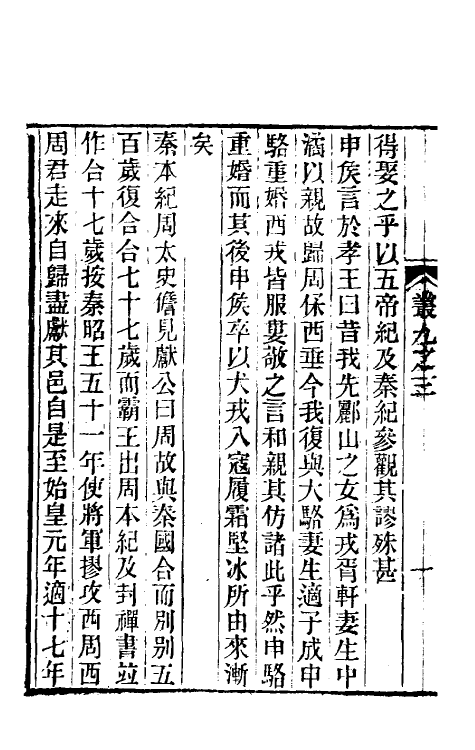 叢九之三
一
得娶之乎以五帝紀及秦紀參觀其謬殊甚
申矦言於孝王曰昔我先酈山之女爲戎胥軒妻生中
潏以親故歸周保西垂今我復與大駱妻生適子成申
駱重婚西戎皆服婁敬之言和親其仿諸此乎然申駱
重婚而其後申矦卒以犬戎入寇履霜堅冰所由來漸
矣
秦本紀周太史儋見獻公曰周故與秦國合而別別五
百歲復合合七十七歲而霸王出周本紀及封禪書竝
作合十七歲按秦昭王五十一年使將軍摎攻西周西
周君走來自歸盡獻其邑自是至始皇元年適十七年